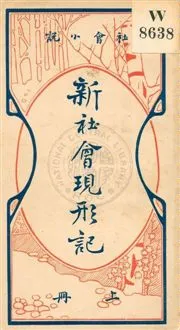 W
8638
社會小說
新社會現形記
上冊
NATIONAL CENTRAL LIBRARY